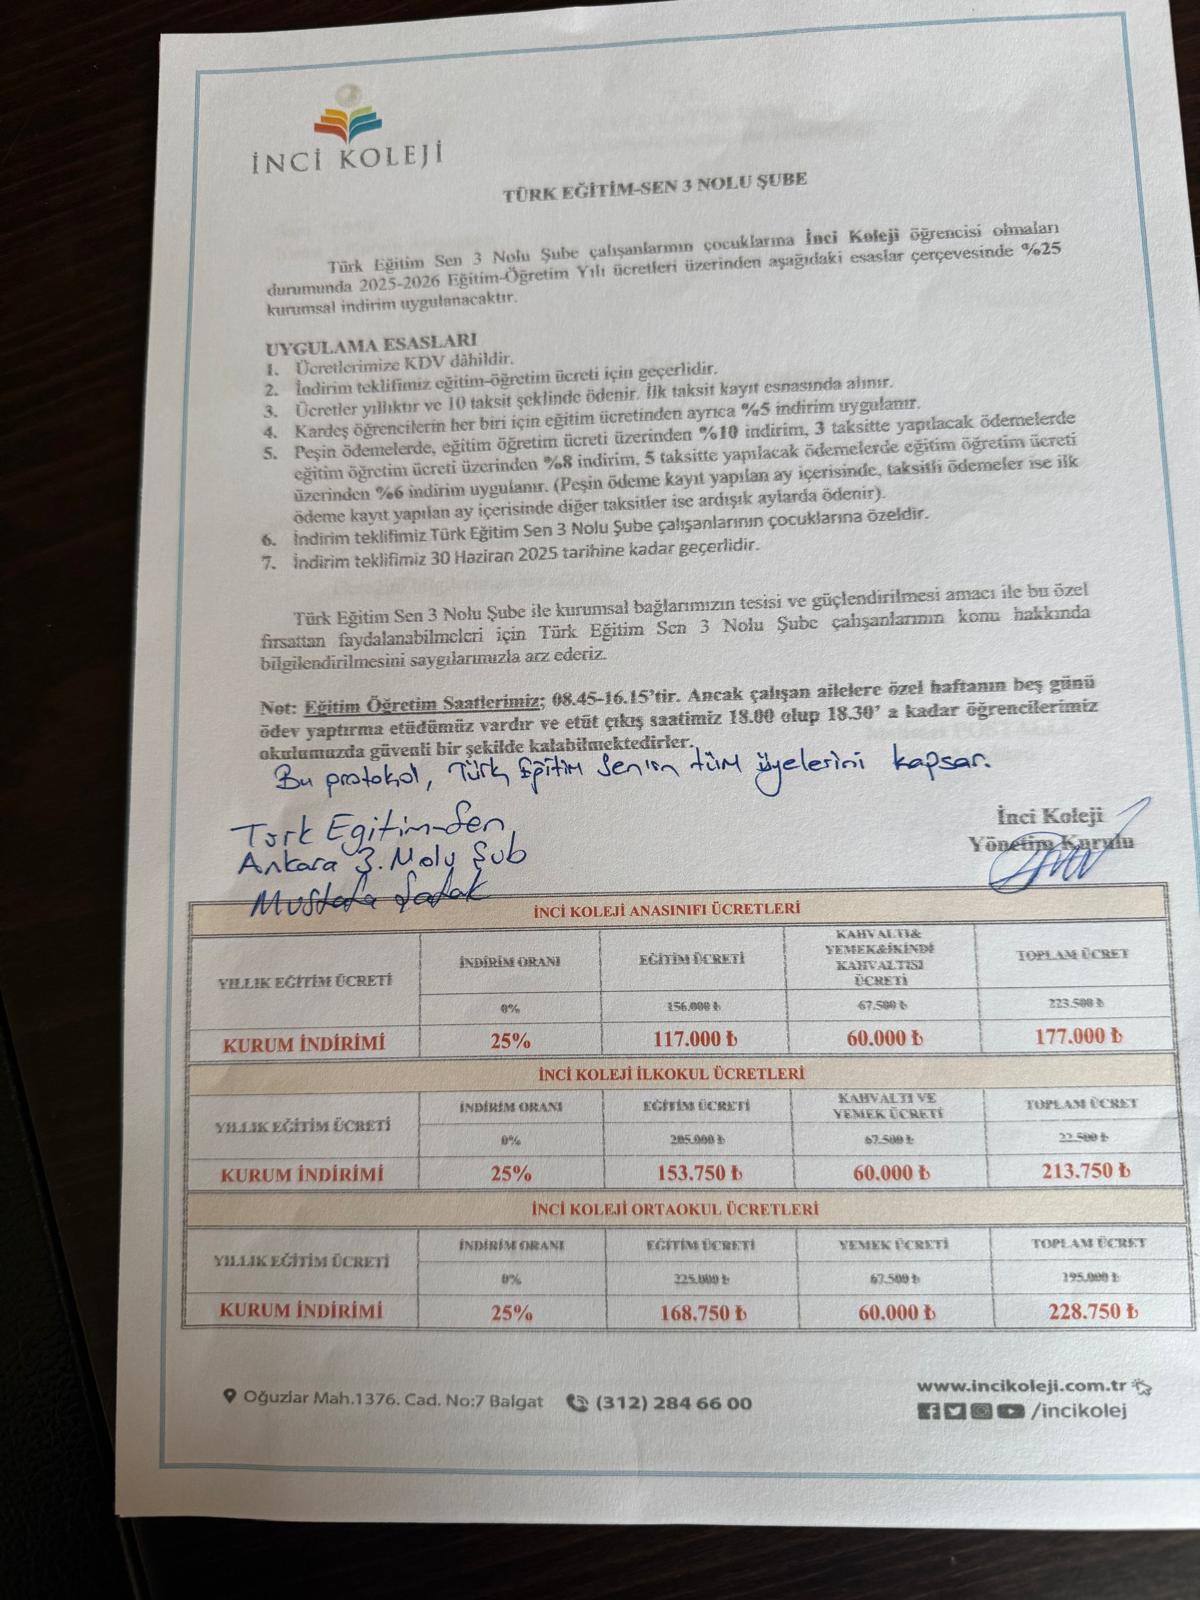 İNCİ KOLEJİ
TÜRK EĞİTİM-SEN 3 NOLU ŞUBE
Türk Eğitim Sen 3 Nolu Şube çalışanlarının çocuklarına İnci Koleji öğrencisi olmaları
durumunda 2025-2026 Eğitim-Öğretim Yılı ücretleri üzerinden aşağıdaki esaslar çerçevesinde %25
kurumsal indirim uygulanacaktır.
UYGULAMA ESASLARI
1. Ücretlerimize KDV dâhildir.
2. İndirim teklifimiz eğitim-öğretim ücreti için geçerlidir.
3. Ücretler yıllıktır ve 10 taksit şeklinde ödenir. İlk taksit kayıt esnasında alınır.
4. Kardeş öğrencilerin her biri için eğitim ücretinden ayrıca %5 indirim uygulanır.
5. Peşin ödemelerde, eğitim öğretim ücreti üzerinden %10 indirim, 3 taksitte yapılacak ödemelerde
eğitim öğretim ücreti üzerinden %8 indirim, 5 taksitte yapılacak ödemelerde eğitim öğretim ücreti
üzerinden %6 indirim uygulanır. (Peşin ödeme kayıt yapılan ay içerisinde, taksitli ödemeler ise ilk
ödeme kayıt yapılan ay içerisinde diğer taksitler ise ardışık aylarda ödenir).
6. İndirim teklifimiz Türk Eğitim Sen 3 Nolu Şube çalışanlarının çocuklarına özeldir.
7. İndirim teklifimiz 30 Haziran 2025 tarihine kadar geçerlidir.
Türk Eğitim Sen 3 Nolu Şube ile kurumsal bağlarımızın tesisi ve güçlendirilmesi amacı ile bu özel
fırsattan faydalanabilmeleri için Türk Eğitim Sen 3 Nolu Şube çalışanlarının konu hakkında
bilgilendirilmesini saygılarımızla arz ederiz.
Not: Eğitim Öğretim Saatlerimiz; 08.45-16.15'tir. Ancak çalışan ailelere özel haftanın beş günü
ödev yaptırma etüdümüz vardır ve etüt çıkış saatimiz 18.00 olup 18.30' a kadar öğrencilerimiz
okulumuzda güvenli bir şekilde kalabilmektedirler.
Bu protokol, Türk Eğitim Sen'in tüm üyelerini kapsar.
Türk Egitim-Sen
Ankara 3. Nolu Şub
Mustafa
İnci Koleji
Yönetim Kurulu
İNCİ KOLEJİ ANASINIFI ÜCRETLERİ
YILLIK EĞİTİM ÜCRETİ İNDİRİM ORANI EĞİTİM ÜCRETİ KAHVALTI& YEMEK&İKİNDİ KAHVALTISI ÜCRETİ TOPLAM ÜCRET
0% 156.000 ₺ 67.500 ₺ 223.500 ₺
KURUM İNDİRİMİ 25% 117.000 ₺ 60.000 ₺ 177.000 ₺
İNCİ KOLEJİ İLKOKUL ÜCRETLERİ
YILLIK EĞİTİM ÜCRETİ İNDİRİM ORANI EĞİTİM ÜCRETİ KAHVALTI VE YEMEK ÜCRETİ TOPLAM ÜCRET
0% 205.000 ₺ 67.500 ₺ 22.500 ₺
KURUM İNDİRİMİ 25% 153.750 ₺ 60.000 ₺ 213.750 ₺
İNCİ KOLEJİ ORTAOKUL ÜCRETLERİ
YILLIK EĞİTİM ÜCRETİ İNDİRİM ORANI EĞİTİM ÜCRETİ YEMEK ÜCRETİ TOPLAM ÜCRET
0% 225.000 ₺ 67.500 ₺ 195.000 ₺
KURUM İNDİRİMİ 25% 168.750 ₺ 60.000 ₺ 228.750 ₺
Oğuzlar Mah.1376. Cad. No:7 Balgat (312) 284 66 00
www.incikoleji.com.tr
/incikolej